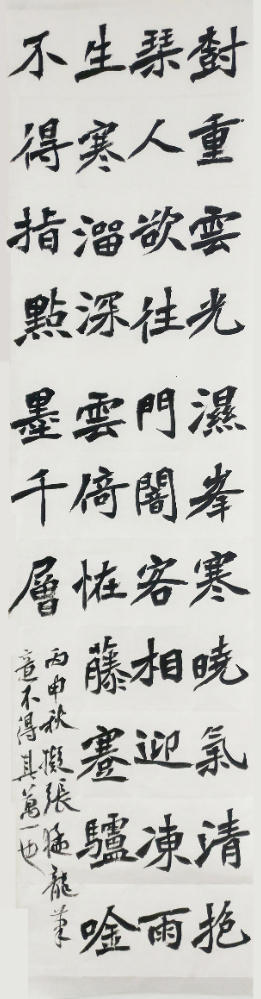 對重雲光濕峯寒曉氣清抱
琹人欲往門闇客相迎凍雨
生寒溜深雲倚怪藤蹇驢唫
不得指點墨千層
丙申秋擬張猛龍筆
意不得其萬一也